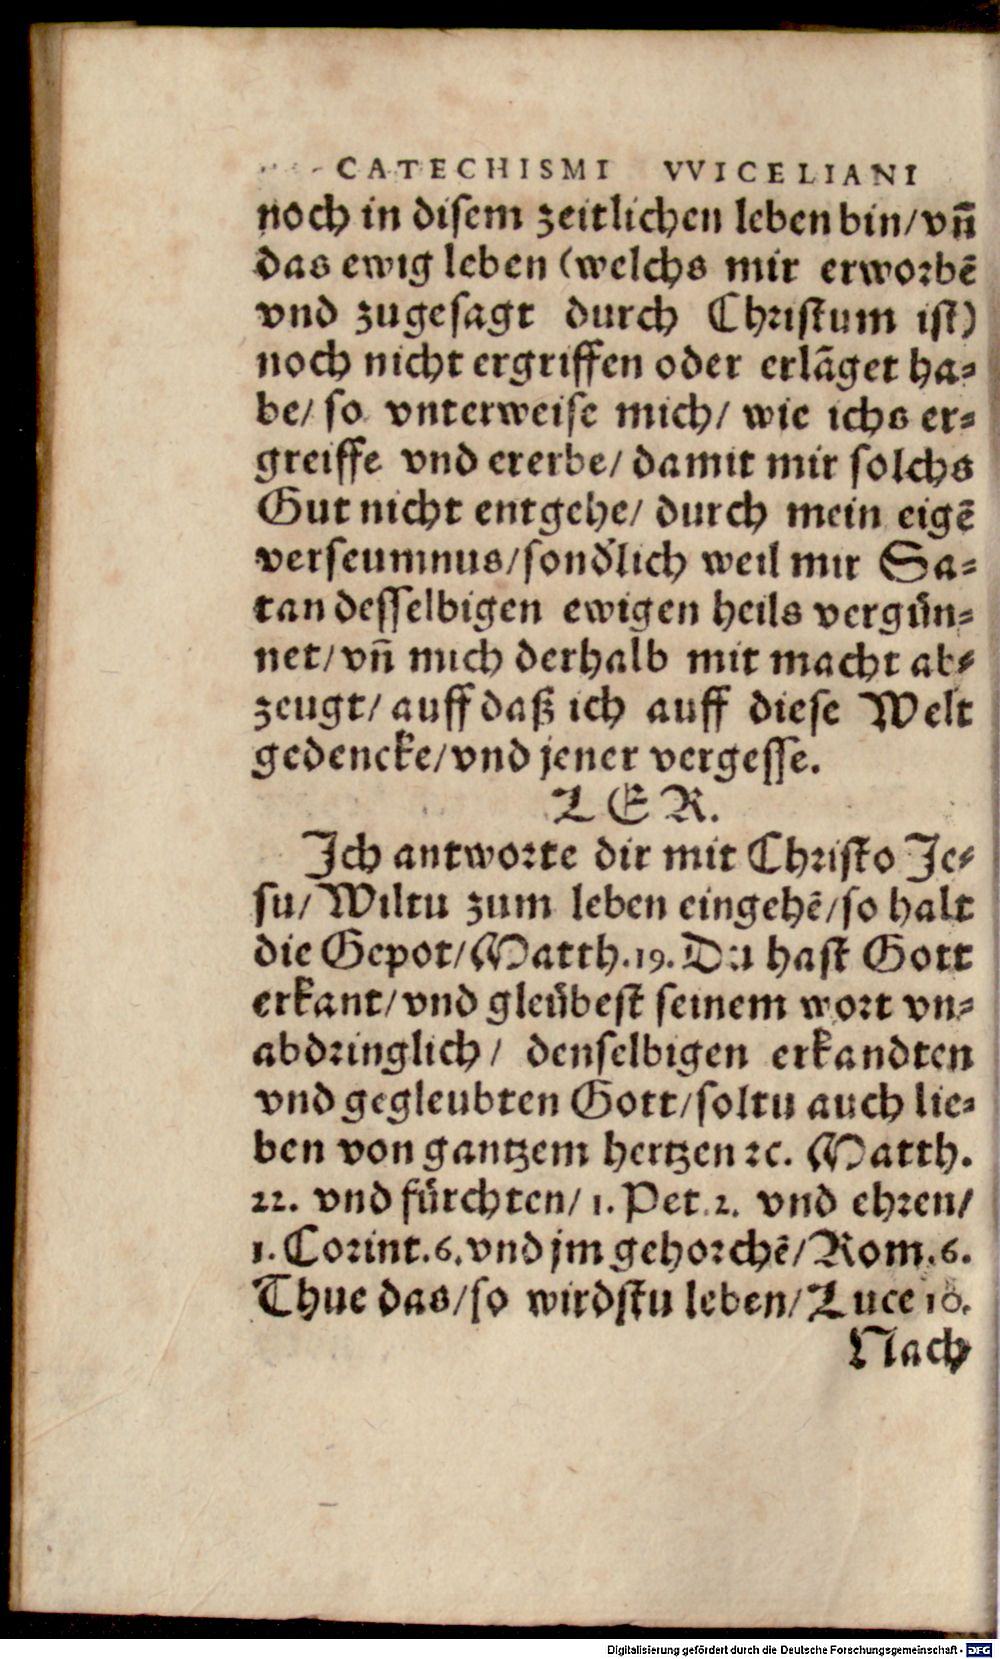 CATECHISMI VVICELIANI
noch in disem zeitlichen leben bin/ vñ
das ewig leben (welchs mir erworbē
vnd zugesagt durch Christum ist)
noch nicht ergriffen oder erlāget ha⸗
be/ so vnterweise mich/ wie ichs er⸗
greiffe vnd ererbe/ damit mir solchs
Gut nicht entgehe/ durch mein eigē
verseumnus/ sond'lich weil mir Sa⸗
tan desselbigen ewigen heils vergün⸗
net/ vñ mich derhalb mit macht ab⸗
zeugt/ auff daß ich auff diese Welt
gedencke/ vnd jener vergesse.
LER.
Ich antworte dir mit Christo Je⸗
su/ Wiltu zum leben eingehē/ so halt
die Gepot/ Matth. 19. Du hast Gott
erkant/ vnd gleübest seinem wort vn⸗
abdringlich/ denselbigen erkandten
vnd gegleubten Gott/ soltu auch lie⸗
ben von gantzem hertzen ꝛc. Matth.
22. vnd fürchten/ 1. Pet. 2. vnd ehren/
1. Corint. 6. vnd jm gehorchē/ Rom. 6.
Thue das/ so wirdstu leben/ Luce 10.
Nach
Digitalisierung gefördert durch die Deutsche Forschungsgemeinschaft - DFG